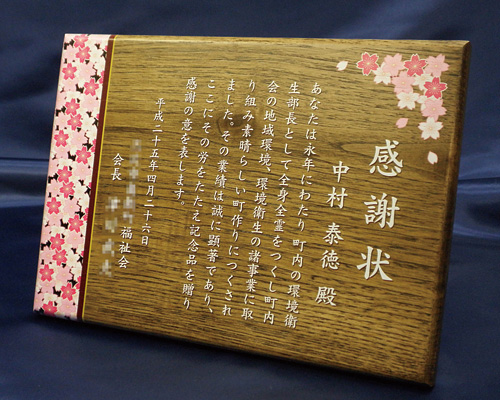 感謝状
中村 泰徳 殿
あなたは永年にわたり 町内の環境衛
生部長として全身全霊をつくし町内
会の地域環境、環境衛生の諸事業に取
り組み素晴らしい町作りにつくされ
ました。その業績は誠に顕著であり、
ここにその労をたたえ記念品を贈り
感謝の意を表します。
平成二十五年四月二十六日
福祉会
会長